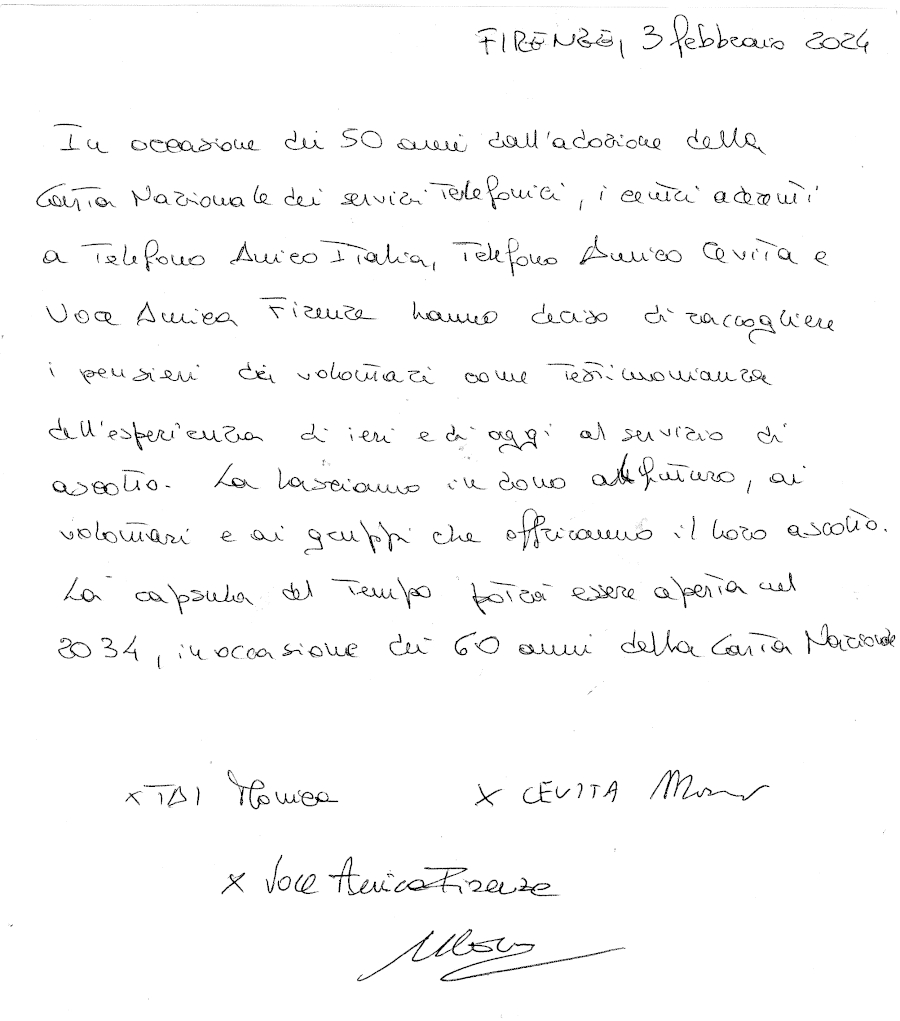 FIRENZE, 3 febbraio 2024
In occasione dei 50 anni dall'adozione della
Carta Nazionale dei servizi Telefonici, i centri aderenti
a Telefono Amico Italia, Telefono Amico Cevita e
Voce Amica Firenze hanno deciso di raccogliere
i pensieri dei volontari come testimonianza
dell'esperienza di ieri e di oggi al servizio di
ascolto. La lasciamo in dono al futuro, ai
volontari e ai gruppi che offriranno il loro ascolto.
La capsula del Tempo potrà essere aperta nel
2034, in occasione dei 60 anni della Carta Nazionale
x TAI Monica
x CEVITA
x Voce Amica Firenze